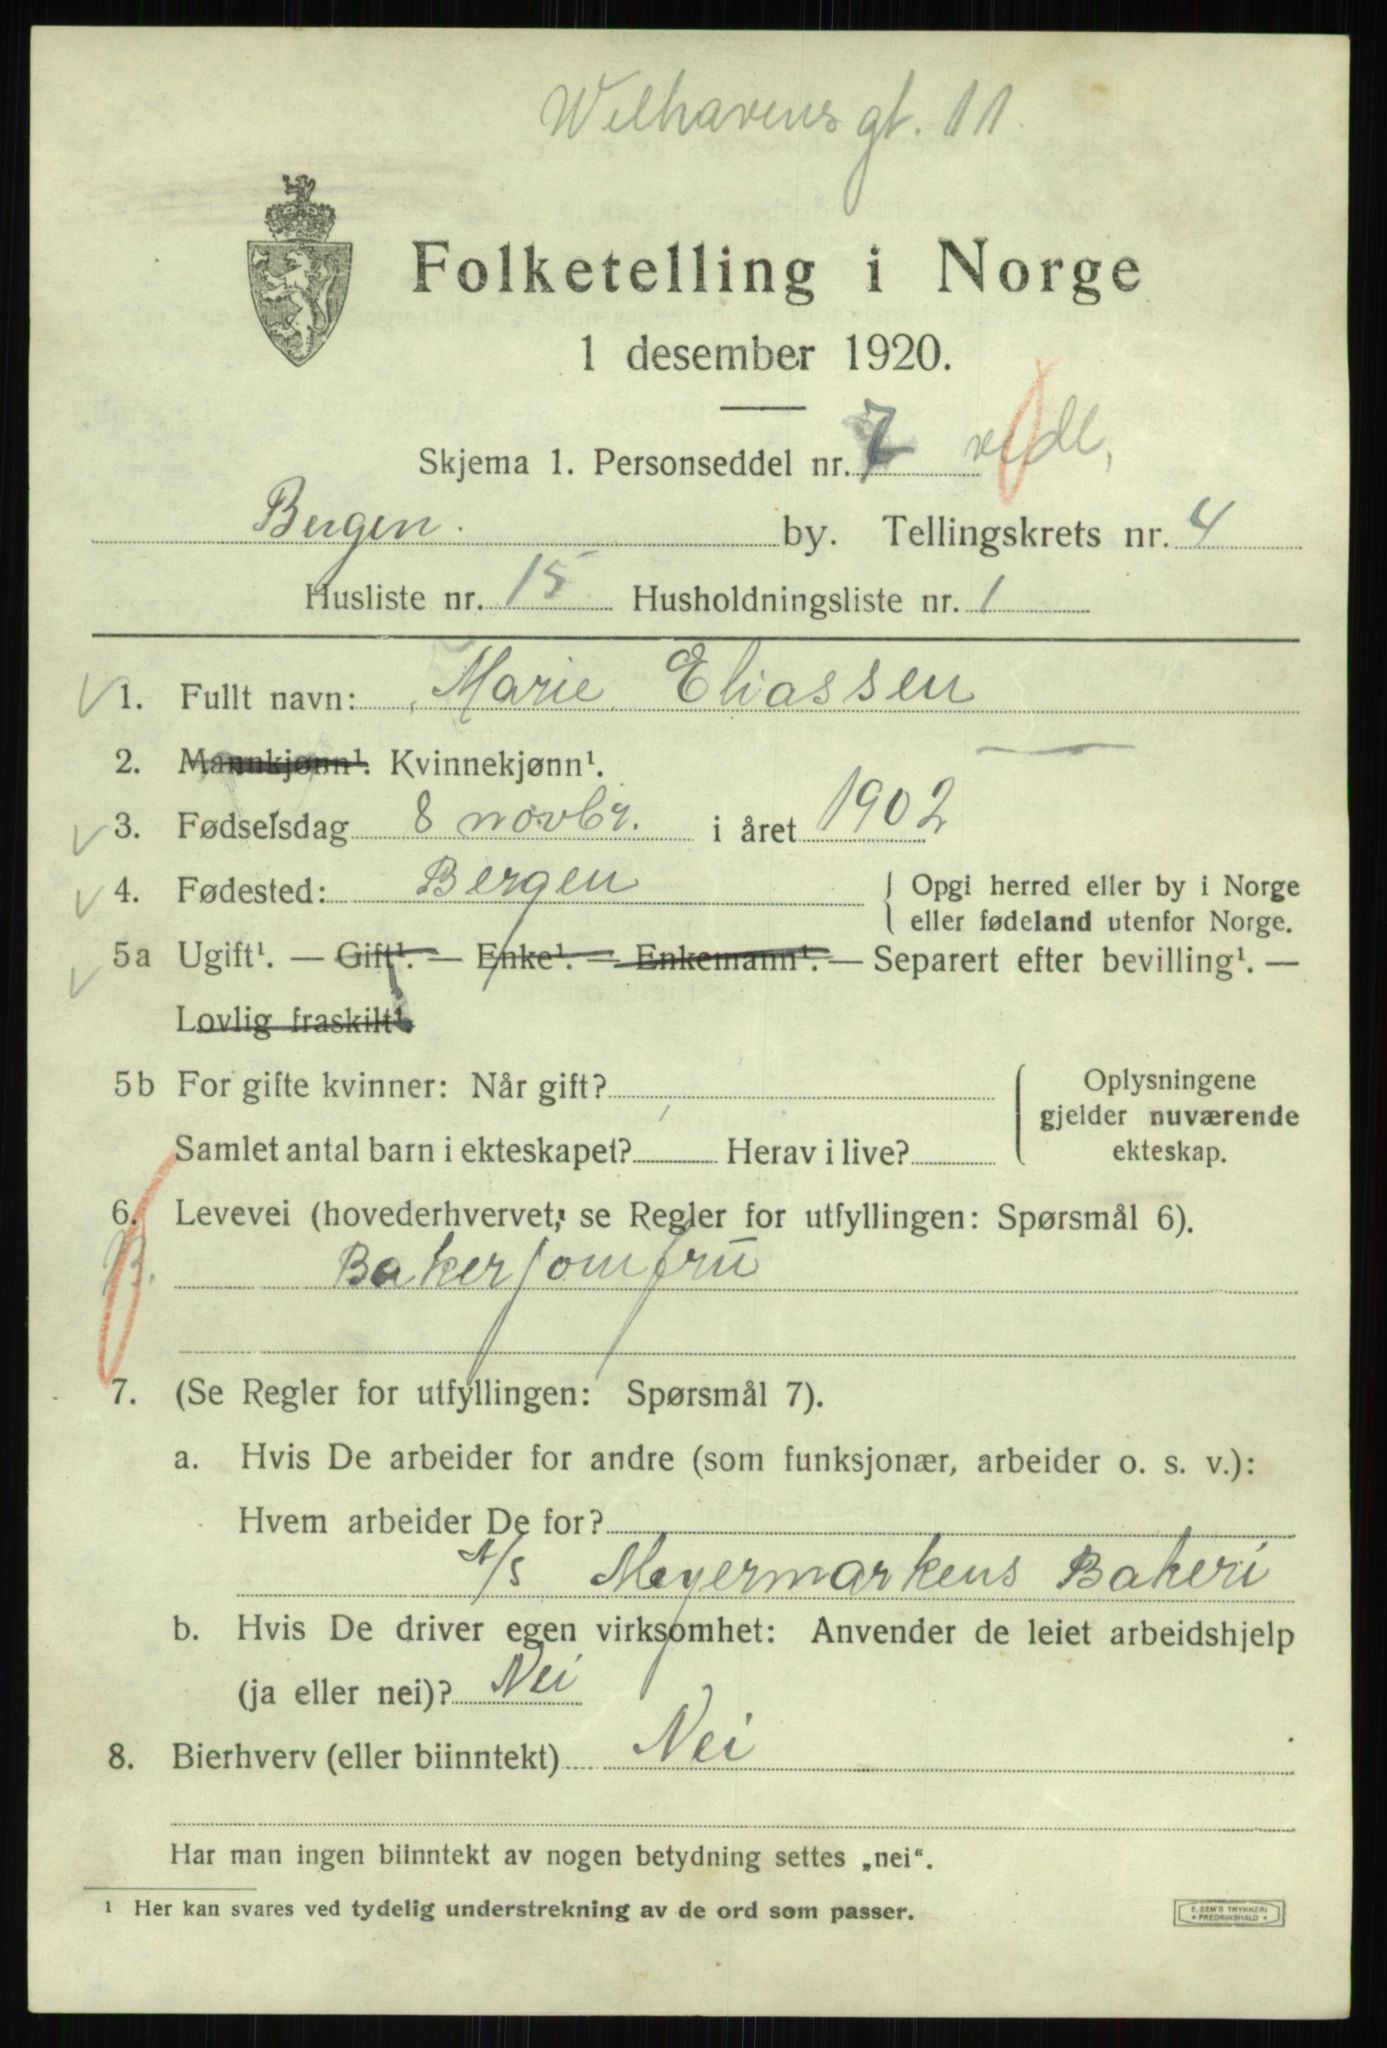 Welhavens gt. 11.
Folketelling i Norge
1 desember 1920.
Skjema 1. Personseddel nr. 7
Bergen. by. Tellingskrets nr. 4
Husliste nr. 15 Husholdningsliste nr. 1
1. Fullt navn: Marie Eliassen
2. Mannkjønn¹. Kvinnekjønn¹.
3. Fødselsdag 8 novbr. i året 1902
4. Fødested: Bergen { Opgi herred eller by i Norge
eller fødeland utenfor Norge.
5a Ugift¹. — Gift¹. — Enke¹. — Enkemann¹. — Separert efter bevilling¹. —
Lovlig fraskilt¹.
5b For gifte kvinner: Når gift? { Oplysningene
gjelder nuværende
Samlet antal barn i ekteskapet? Herav i live? ekteskap.
6. Levevei (hovederhvervet, se Regler for utfyllingen: Spørsmål 6).
B. Bakerjomfru
7. (Se Regler for utfyllingen: Spørsmål 7).
a. Hvis De arbeider for andre (som funksjonær, arbeider o. s. v.):
Hvem arbeider De for?
A/S Meyermarkens Bakeri
b. Hvis De driver egen virksomhet: Anvender de leiet arbeidshjelp
(ja eller nei)? Nei
8. Bierhverv (eller biinntekt) Nei
Har man ingen biinntekt av nogen betydning settes „nei“.
¹ Her kan svares ved tydelig understrekning av de ord som passer.
E. SEM'S TRYKKERI
• FREDRIKSHALD •